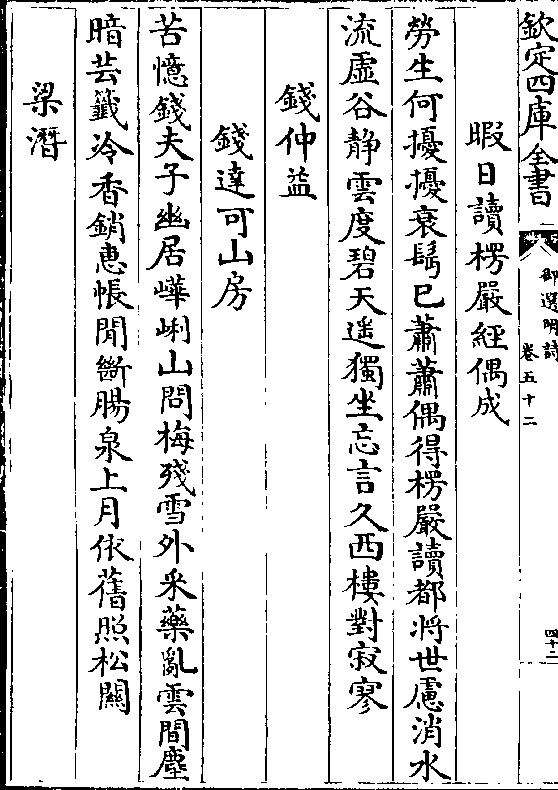 欽定四庫全書
御選明詩
卷五十二
四十二
暇日讀楞嚴經偶成
勞生何擾擾衰鬢已蕭蕭偶得楞嚴讀都將世慮消水
流虛谷静雲度碧天遥獨坐忘言久西樓對寂寥
錢仲益
錢達可山房
苦憶錢夫子幽居嶂崦山問梅殘雪外采藥亂雲間塵
暗芸籤冷香銷蕙帳閒斷腸泉上月依舊照松關
梁潛